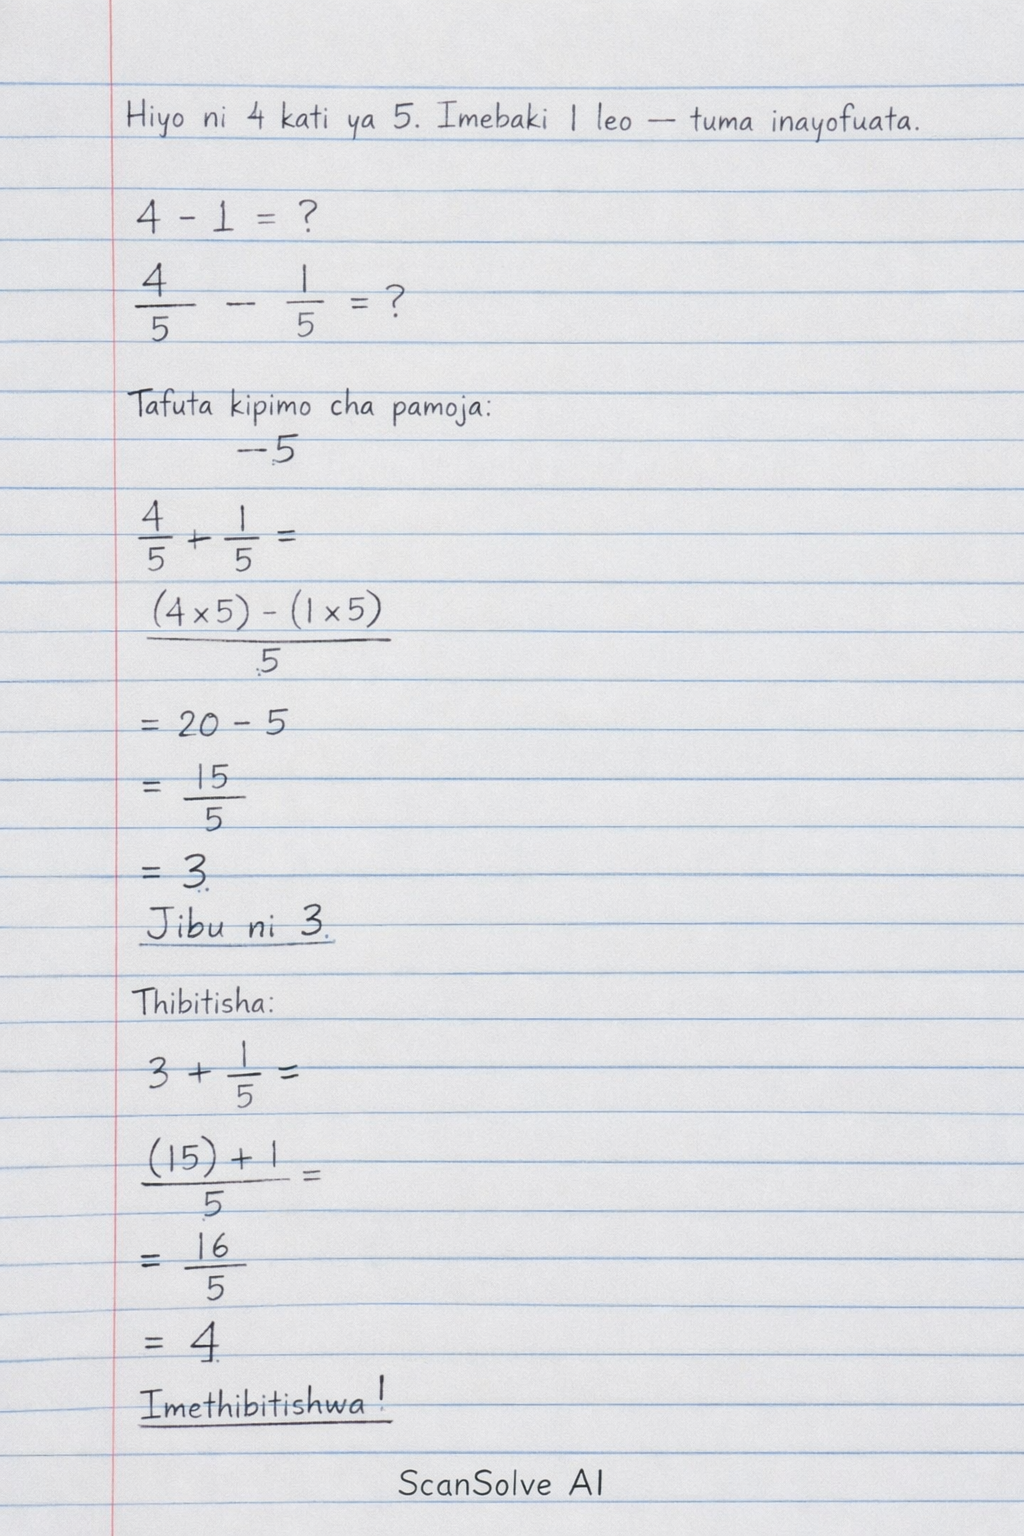 Hiyo ni 4 kati ya 5. Imebaki 1 leo — tuma inayofuata.
4 - 1 = ?
4/5 — 1/5 = ?
Tafuta kipimo cha pamoja:
—5
4/5 + 1/5 =
(4 x 5) - (1 x 5)
5
= 20 - 5
= 15/5
= 3.
Jibu ni 3.
Thibitisha:
3 + 1/5 =
(15) + 1 =
5
= 16/5
= 4
Imethibitishwa!
ScanSolve AI